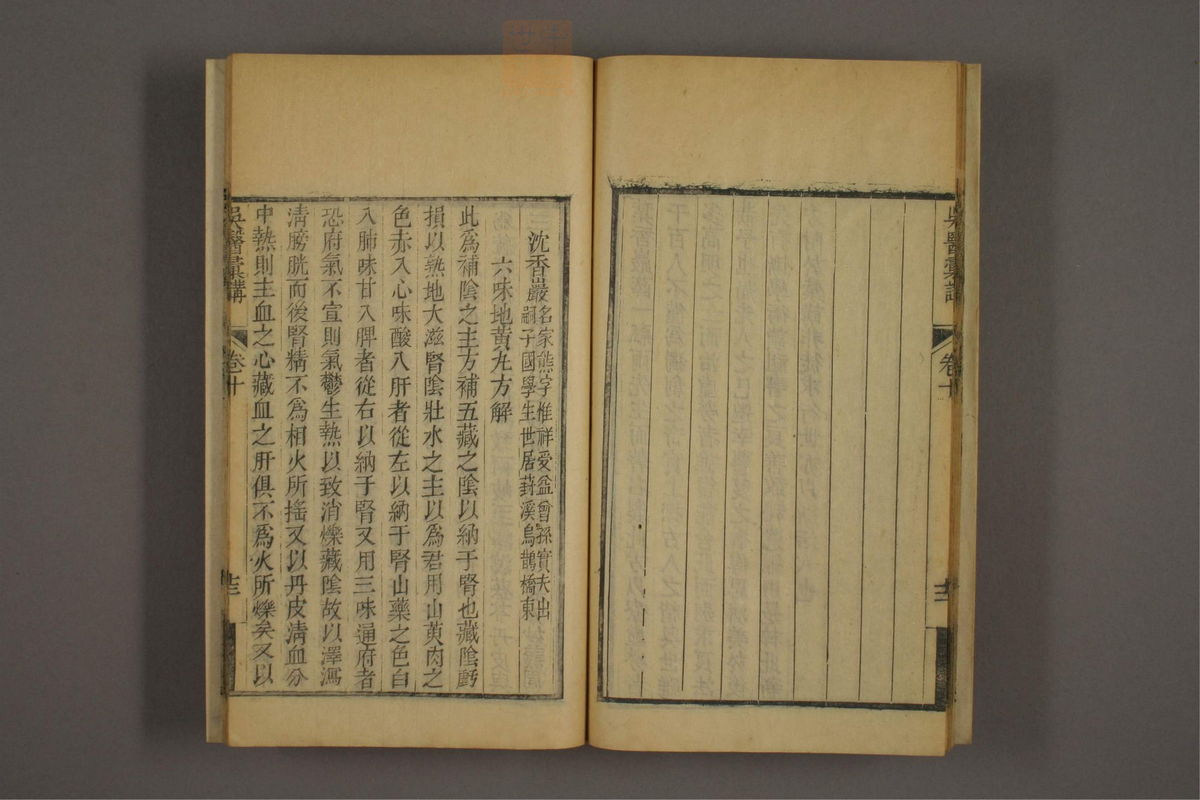 吳醫彙講
卷十
沈香巖
名家熊字惟祥受益曾孫實夫出
嗣子國學生世居葑溪烏鵲橋東
六味地黃丸方解
此爲補陰之主方補五藏之陰以納于腎也藏陰虧
損以熟地大滋腎陰壯水之主以爲君用山萸肉之
色赤入心味酸入肝者從左以納于腎山藥之色白
入肺味甘入脾者從右以納于腎又用三味通府者
恐府氣不宣則氣鬱生熱以致消爍藏陰故以澤瀉
清膀胱而後腎精不爲相火所搖又以丹皮清血分
中熱則主血之心藏血之肝俱不爲火所爍矣又以
吳醫彙講
卷十